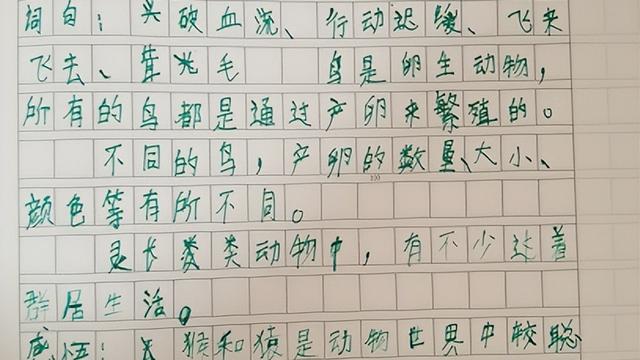 词句：头破血流、行动迟缓、飞来
飞去、茸光毛 鸟是卵生动物，
所有的鸟都是通过产卵来繁殖的。
不同的鸟，产卵的数量、大小、
100
颜色等有所不同。
灵长类类动物中，有不少过着
群居生活。
感悟：猴和猿是动物世界中较聪